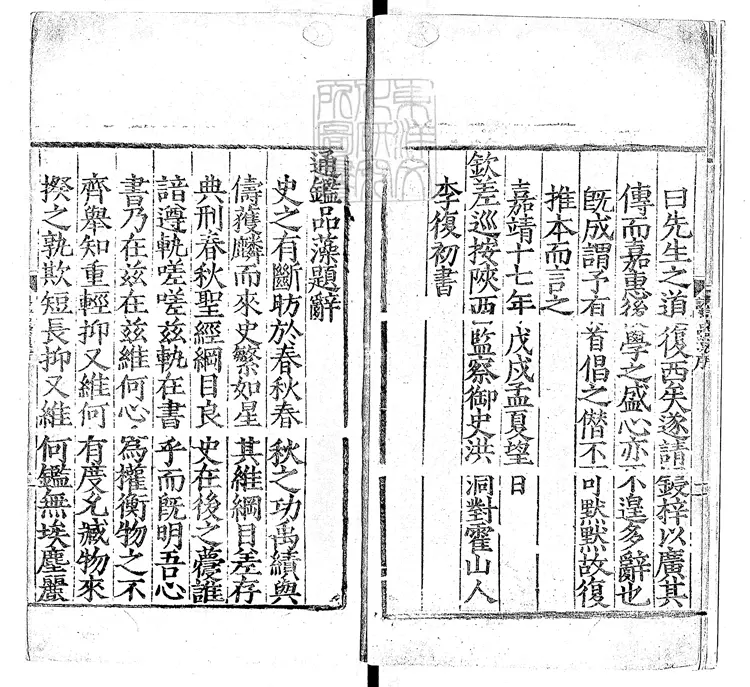 曰先生之道復西矣遂請鋟梓以廣其
傳而嘉惠後學之盛心亦不遑多辭也
旣成謂予有首倡之僭不可默默故復
推本而言之
嘉靖十七年戊戌孟夏望日
欽差巡按陝西監察御史洪洞對霍山人
李復初書
通鑑品藻題辭
史之有斷昉於春秋春秋之功禹績與
儔獲麟而來史繁如星其維綱目差存
典刑春秋聖經綱目良史在後之夢誰
諳遵軌嗟嗟茲軌在書乎而旣明吾心
書乃在茲在茲維何心為權衡物之不
齊舉知重輕抑又維何有度允臧物來
揆之孰欺短長抑又維何鑑無埃塵麗